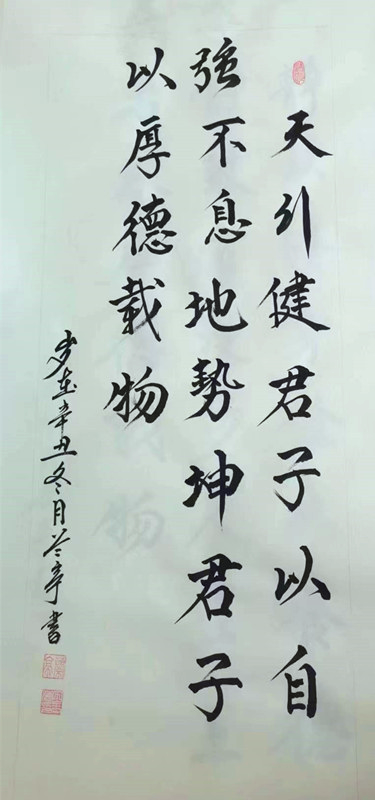 天行健君子以自
强不息地勢坤君子
以厚德载物
岁在辛丑冬月兰亭書